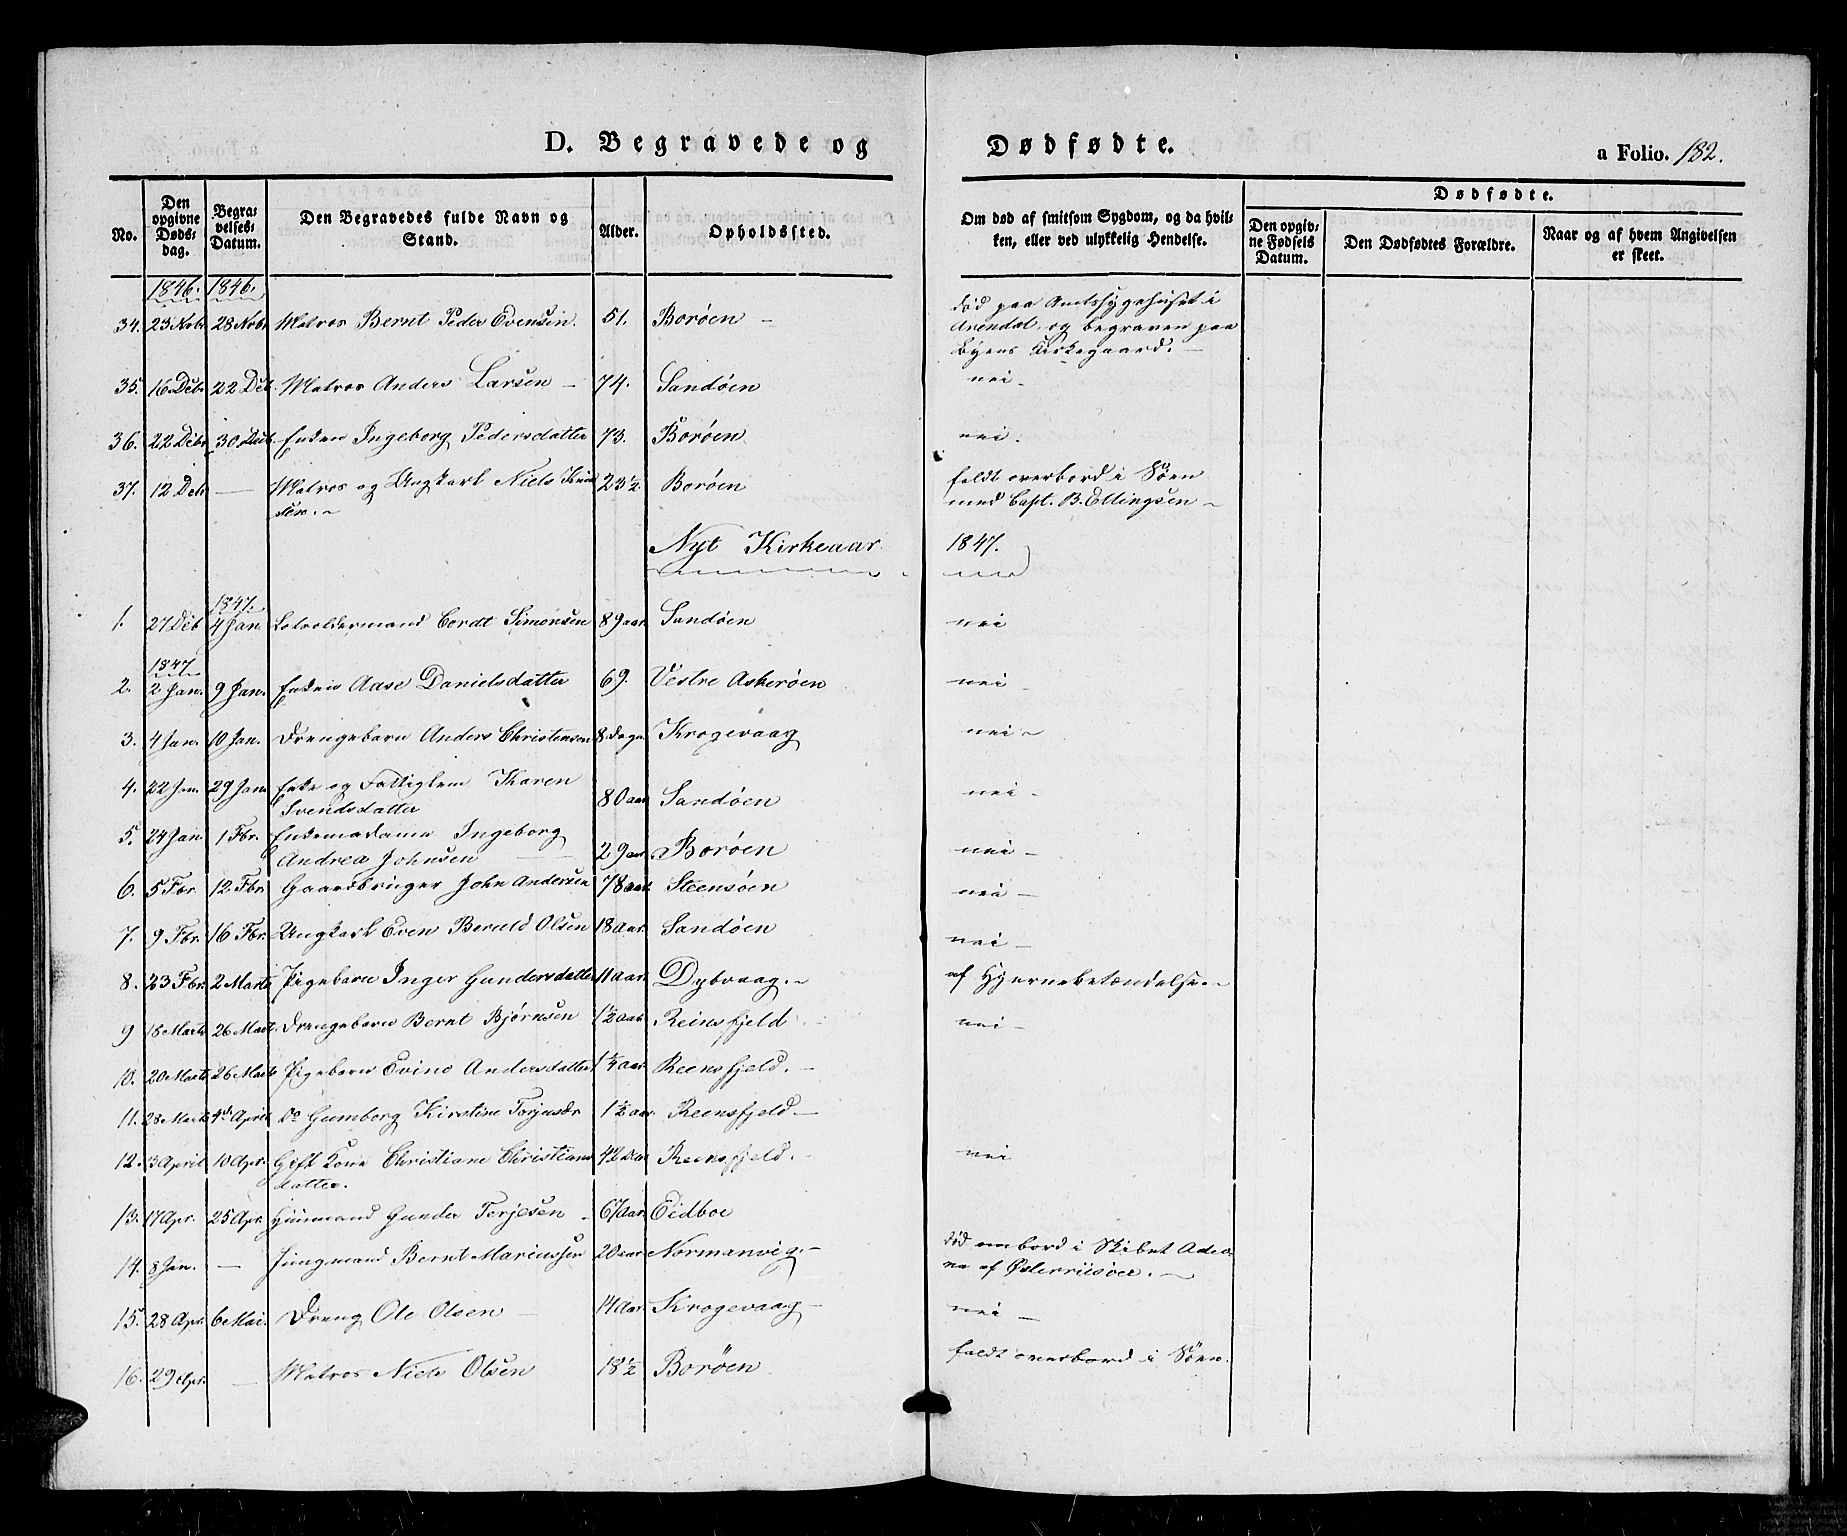 D. Begravede og Dødfødte.
a Folio. 182.
No. Den opgivne Dødsdag. Begravelses-Datum. Den Begravedes fulde Navn og Stand. Alder. Opholdssted. Om død af smitsom Sygdom, og da hvilken, eller ved ulykkelig Hendelse. Dødfødte. Den opgivne Fødsels Datum. Den Dødfødtes Forældre. Naar og af hvem Angivelsen er skeet.
1846. 1846.
34. 23 Nobr 28 Nobr Matros Bernt Peder Evensen. 51. Borøen – død paa Amtssygehuset i
Arendal, og begraven paa
Byens Kirkegaard. –
35. 16 Debr 22 Deb Matros Anders Larsen – 74. Sandøen nei –
36. 22 Debr 30 Deb Enken Ingeborg Pedersdatter 73. Borøen nei.
37. 12 Deb – Matros og Ungkarl Niels 23½ Borøen faldt overbord i Søen
sen. ~ med Capt. B. Ellingsen ~
Nyt Kirkeaar 1847.
1847.
1. 27 Deb 4 Jan. Lodsoldermand Cordt Simonsen 89 aar Sandøen nei
1847
2. 2 Jan. 9 Jan. Enken Aase Danielsdatter 69. Vestre Askerøen nei –
3. 4 Jan. 10 Jan. Drengebarn Anders Christensen 8 dage Krogevaag nei ~
4. 22 Jan. 29 Jan. Enke og Fattiglem Karen
Svendsdatter 80 aar Sandøen nei –
5. 24 Jan 1 Fbr. Enkemadame Ingeborg
Andrea Johnsen – 29 aar Borøen nei –
6. 5 Fbr. 12 Fbr. Gaardbruger John Andersen 78 aar Steensøen nei –
7. 9 Fbr. 16 Fbr. Ungkarl Even Beruld Olsen 18 Aar. Sandøen nei –
8. 23 Fbr. 2 Marts Pigebarn Inger Gundersdatter 11 Aar Dybvaag. ~ af Hjernebetændelse. ~
9 18 Marts 26 Mart. Drengebarn Bernt Bjørnsen 1½ aar Reinsfjeld. nei –
10. 20 Marts 26 Marts Pigebarn Evine Andersdatter 1¼ aar Reensfjeld. –
11. 28 Marts 4de April Do Gumborg Kirstine Torjusdr 1½ aar. Reensfjeld –
12. 3 April 10 Apr. Gift Kone Christiane Christians 42 Aar Reensfjeld. – nei
datter.
13. 17 Apr. 25 Apr. Huusmand Gunder Terjesen 67 Aar. Eidboe
14. 8 Jan. – Jungmand Bernt Mariussen 20 aar Normanvig. – død ombord i Skibet
af Østerriisøer. ~
15. 28 Apr. 6 Mai. Dreng Ole Olsen – 14 Aar. Krogevaag – nei –
16. 29 Apr. – Matros Niels Olsen 18½ Borøen faldt overbord i Søen.